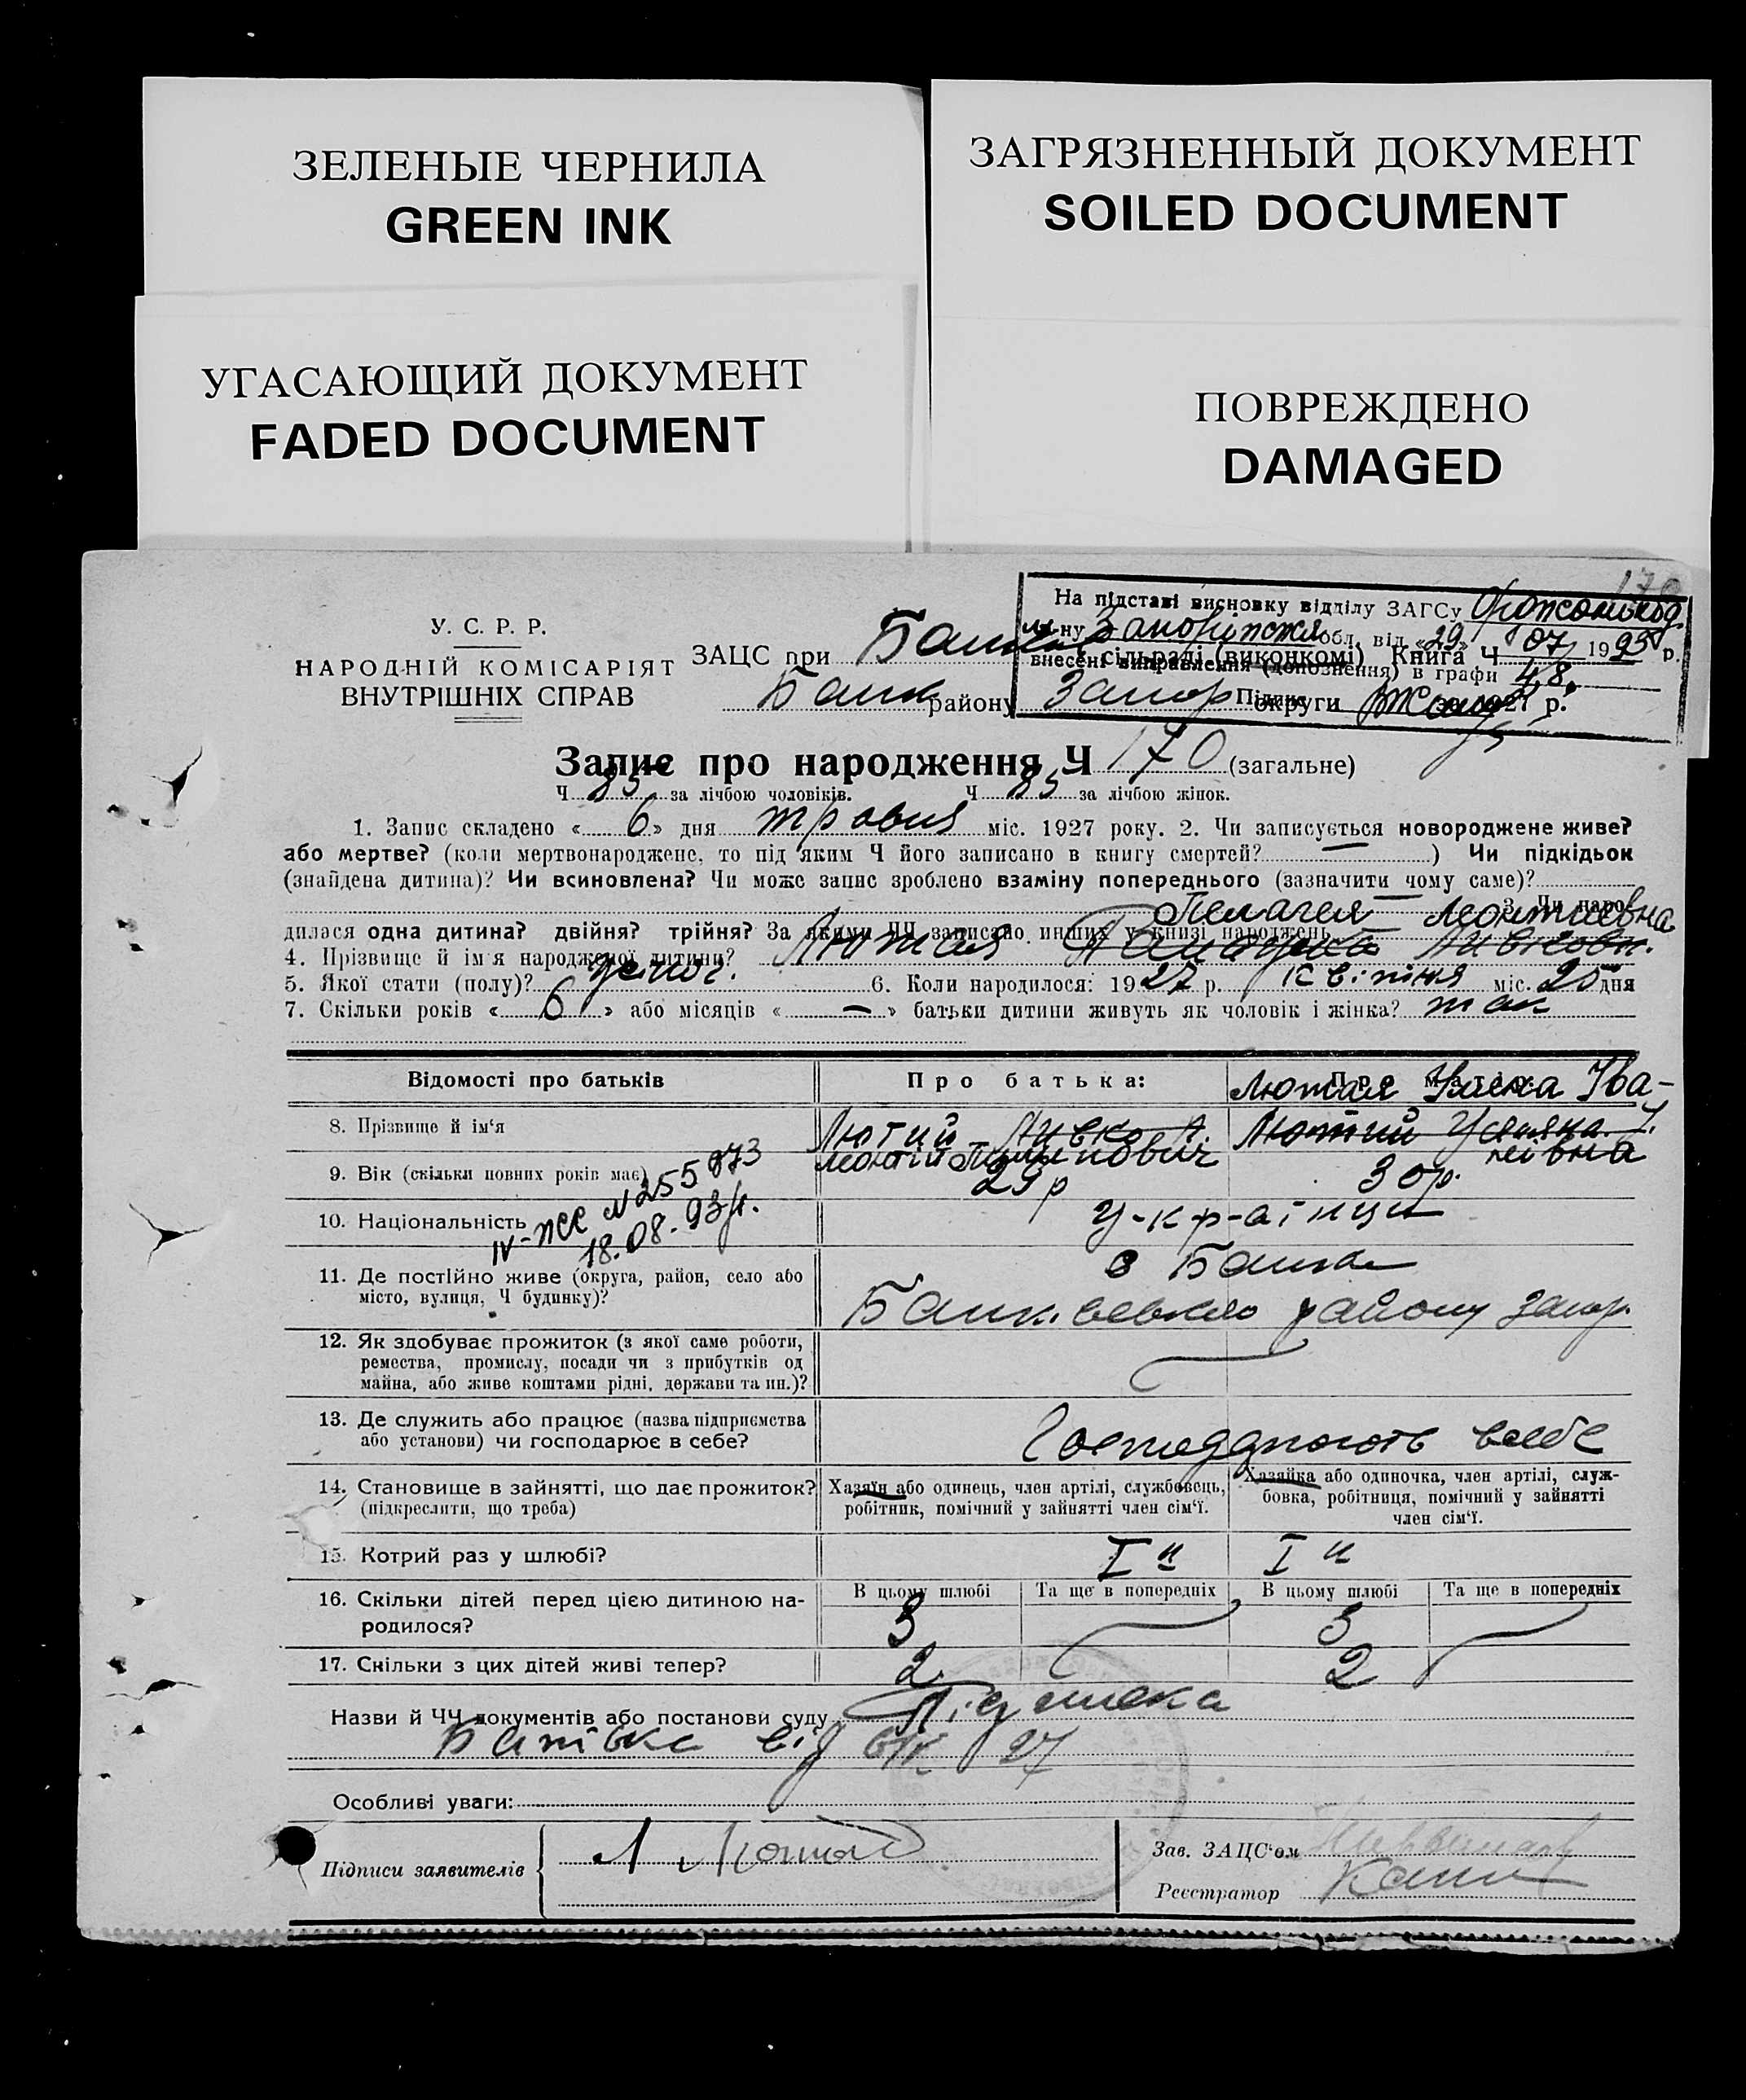 ЗЕЛЕНЫЕ ЧЕРНИЛА
GREEN INK
ЗАГРЯЗНЕННЫЙ ДОКУМЕНТ
SOILED DOCUMENT
УГАСАЮЩИЙ ДОКУМЕНТ
FADED DOCUMENT
ПОВРЕЖДЕНО
DAMAGED
На підставі висновку відділу ЗАГСу
обл. від «29» 07 1993 р.
внесені виправлення (доповнення) в графи 4, 8,
Підпис
У. С. Р. Р.
НАРОДНІЙ КОМІСАРІЯТ
ВНУТРІШНІХ СПРАВ
ЗАЦС при сільраді (виконкомі) Книга Ч
району Запор округи за 1927 р.
Запис про народження Ч 170 (загальне)
Ч 85 за лічбою чоловіків. Ч 85 за лічбою жінок.
1. Запис складено « 6 » дня травня міс. 1927 року. 2. Чи записується новороджене живе?
або мертве? (коли мертвонароджене, то під яким Ч його записано в книгу смертей? — ) Чи підкідьок
(знайдена дитина)? Чи всиновлена? Чи може запис зроблено взаміну попереднього (зазначити чому саме)?
— 3. Чи наро-
Пелагея Леонтиевна
дилася одна дитина? двійня? трійня? За якими ЧЧ записано инших у книзі народжень
4. Прізвище й ім'я народженої дитини? Лютая
5. Якої стати (полу)? 6. Коли народилося: 1927 р. квітня міс. 25 дня
7. Скільки років « 6 » або місяців « — » батьки дитини живуть як чоловік і жінка? так
Відомості про батьків
Про батька:
Про матір:
Лютая Уляна Іва-
8. Прізвище й ім'я
Лютий Лівко
Лютий Усляна
Леонтій Пилипович
нівна
9. Вік (скільки повних років має)
29 р
30 р.
10. Національність
У-к-р-аїнці
IV-ЖС № 255973
18.08.93 р.
11. Де постійно живе (округа, район, село або
місто, вулиця, Ч будинку)?
району Запор.
12. Як здобуває прожиток (з якої саме роботи,
ремества, промислу, посади чи з прибутків од
майна, або живе коштами рідні, держави та ин.)?
13. Де служить або працює (назва підприємства
або установи) чи господарює в себе?
Господарюють в себе
14. Становище в зайнятті, що дає прожиток?
(підкреслити, що треба)
Хазяїн або одинець, член артілі, службовець,
робітник, помічний у зайнятті член сім'ї.
Хазяйка або одиночка, член артілі, служ-
бовка, робітниця, помічний у зайнятті
член сім'ї.
15. Котрий раз у шлюбі?
I й
I й
16. Скільки дітей перед цією дитиною на-
родилося?
В цьому шлюбі
Та ще в попередніх
В цьому шлюбі
Та ще в попередніх
3
3
17. Скільки з цих дітей живі тепер?
2
2
Назви й ЧЧ документів або постанови суду
Батька від 27
Особливі уваги:
Підписи заявителів
Зав. ЗАЦС'ом
Реєстратор